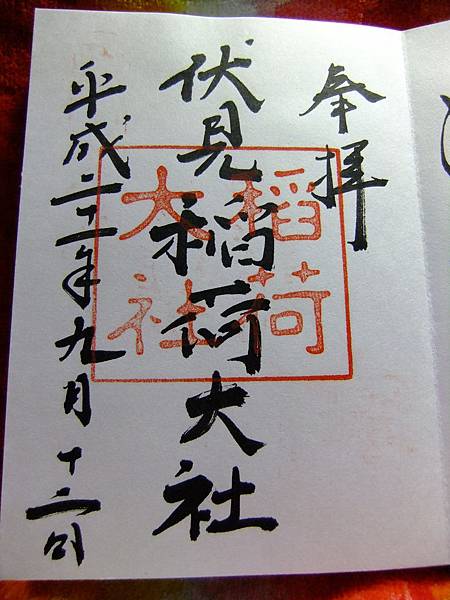 奉拝
伏見稲荷大社
稲荷
大社
平成二十一年九月十二日